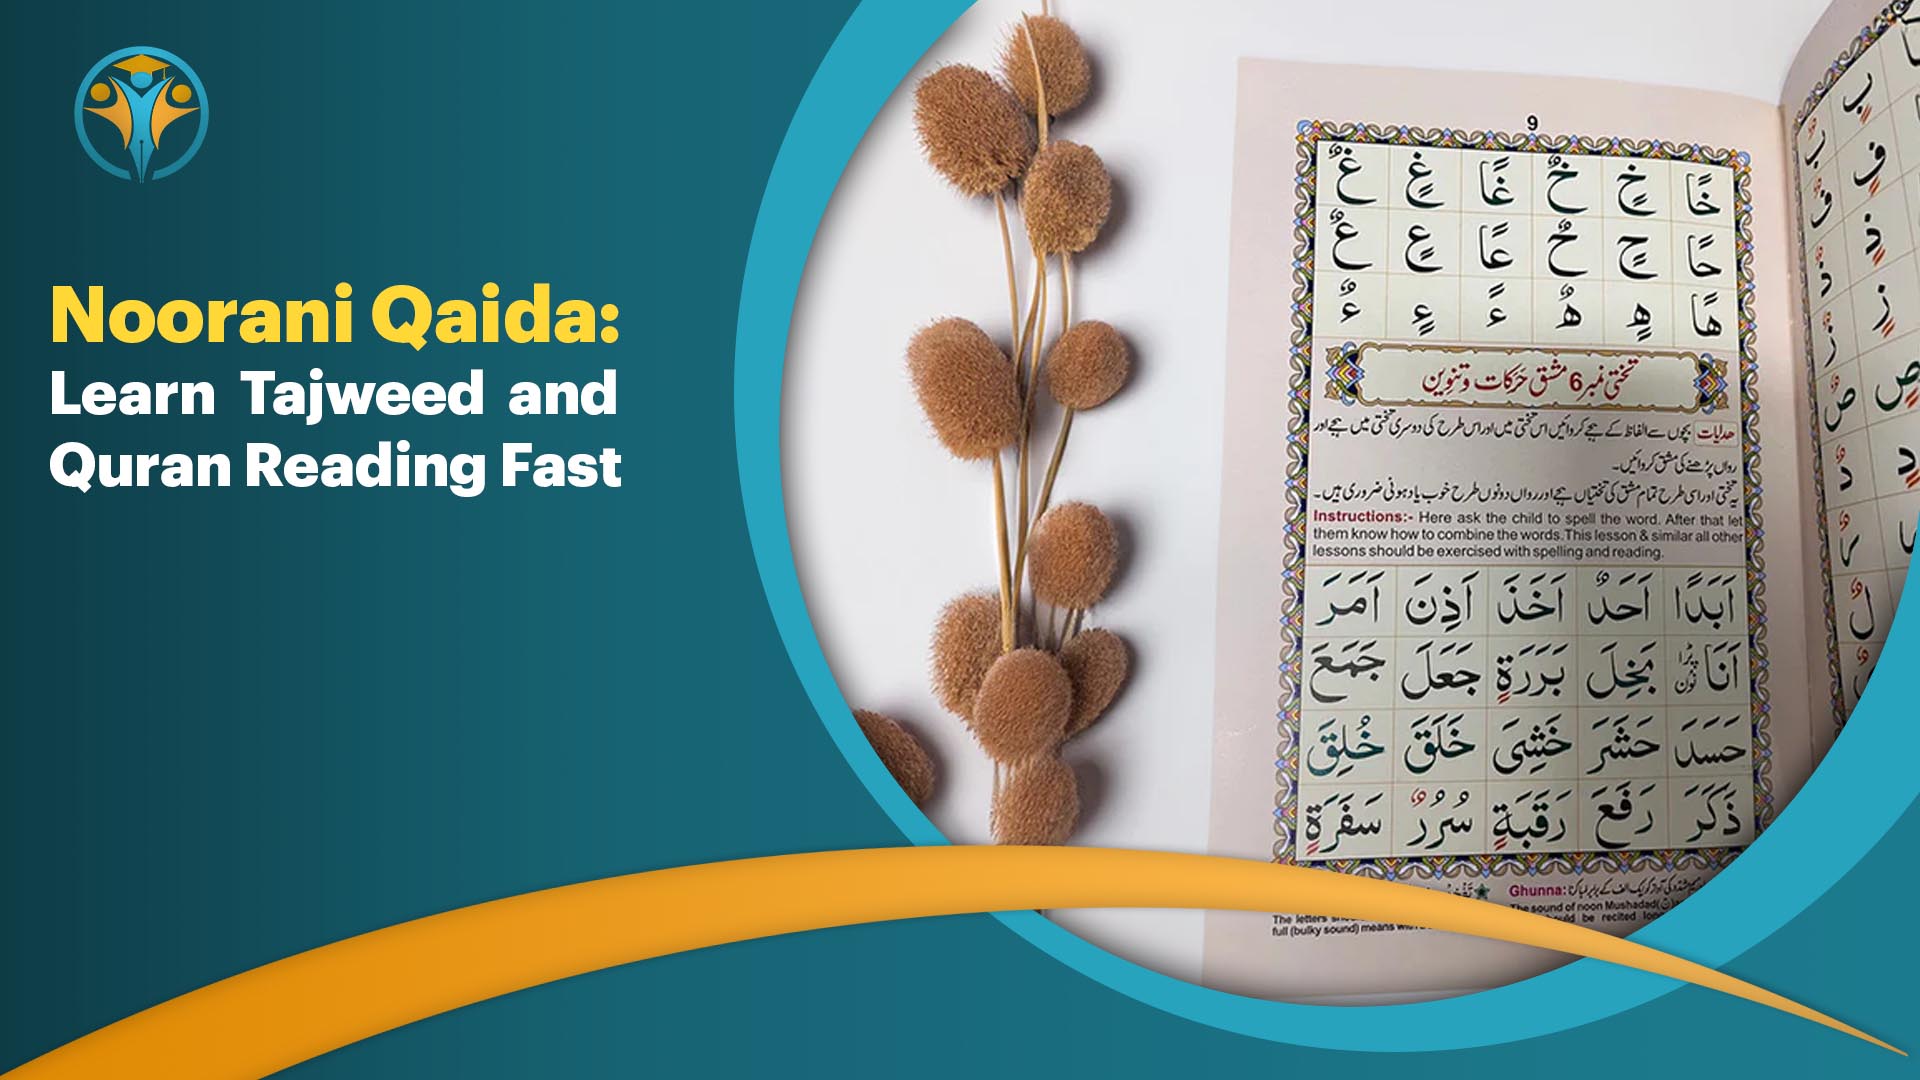 Noorani Qaida:
Learn Tajweed and
Quran Reading Fast
9
خًا خٍ خٌ غًا غٍ غٌ
حًا حٍ حٌ عًا عٍ عٌ
هًا هٍ هٌ ءً ءٍ ءٌ
تختی نمبر 6 مشق حَرَکات وتنوین
ھدایات بچوں سے الفاظ کے ہجے کروائیں اس تختی میں اور اس طرح کی دوسری تختی میں ہجے اور
رواں پڑھنے کی مشق کروائیں۔
یہ تختی اور اسی طرح تمام مشق کی تختیاں ہجے اور رواں دونوں طرح خوب یاد ہونی ضروری ہیں۔
Instructions:- Here ask the child to spell the word. After that let
them know how to combine the words.This lesson & similar all other
lessons should be exercised with spelling and reading.
اَبَدًا اَحَدٌ اَخَذَ اَذِنَ اَمَرَ
اَنَا بَخِلَ بَرَرَةٍ جَعَلَ جَمَعَ
حَسَدَ حَشَرَ خَشِىَ خَلَقَ خُلِقَ
ذَكَرَ رَفَعَ رَقَبَةٍ سُرُرٌ سَفَرَةٍ
Ghunna:
The sound of noon Mushadad
The letters
be recited
full (bulky sound) means